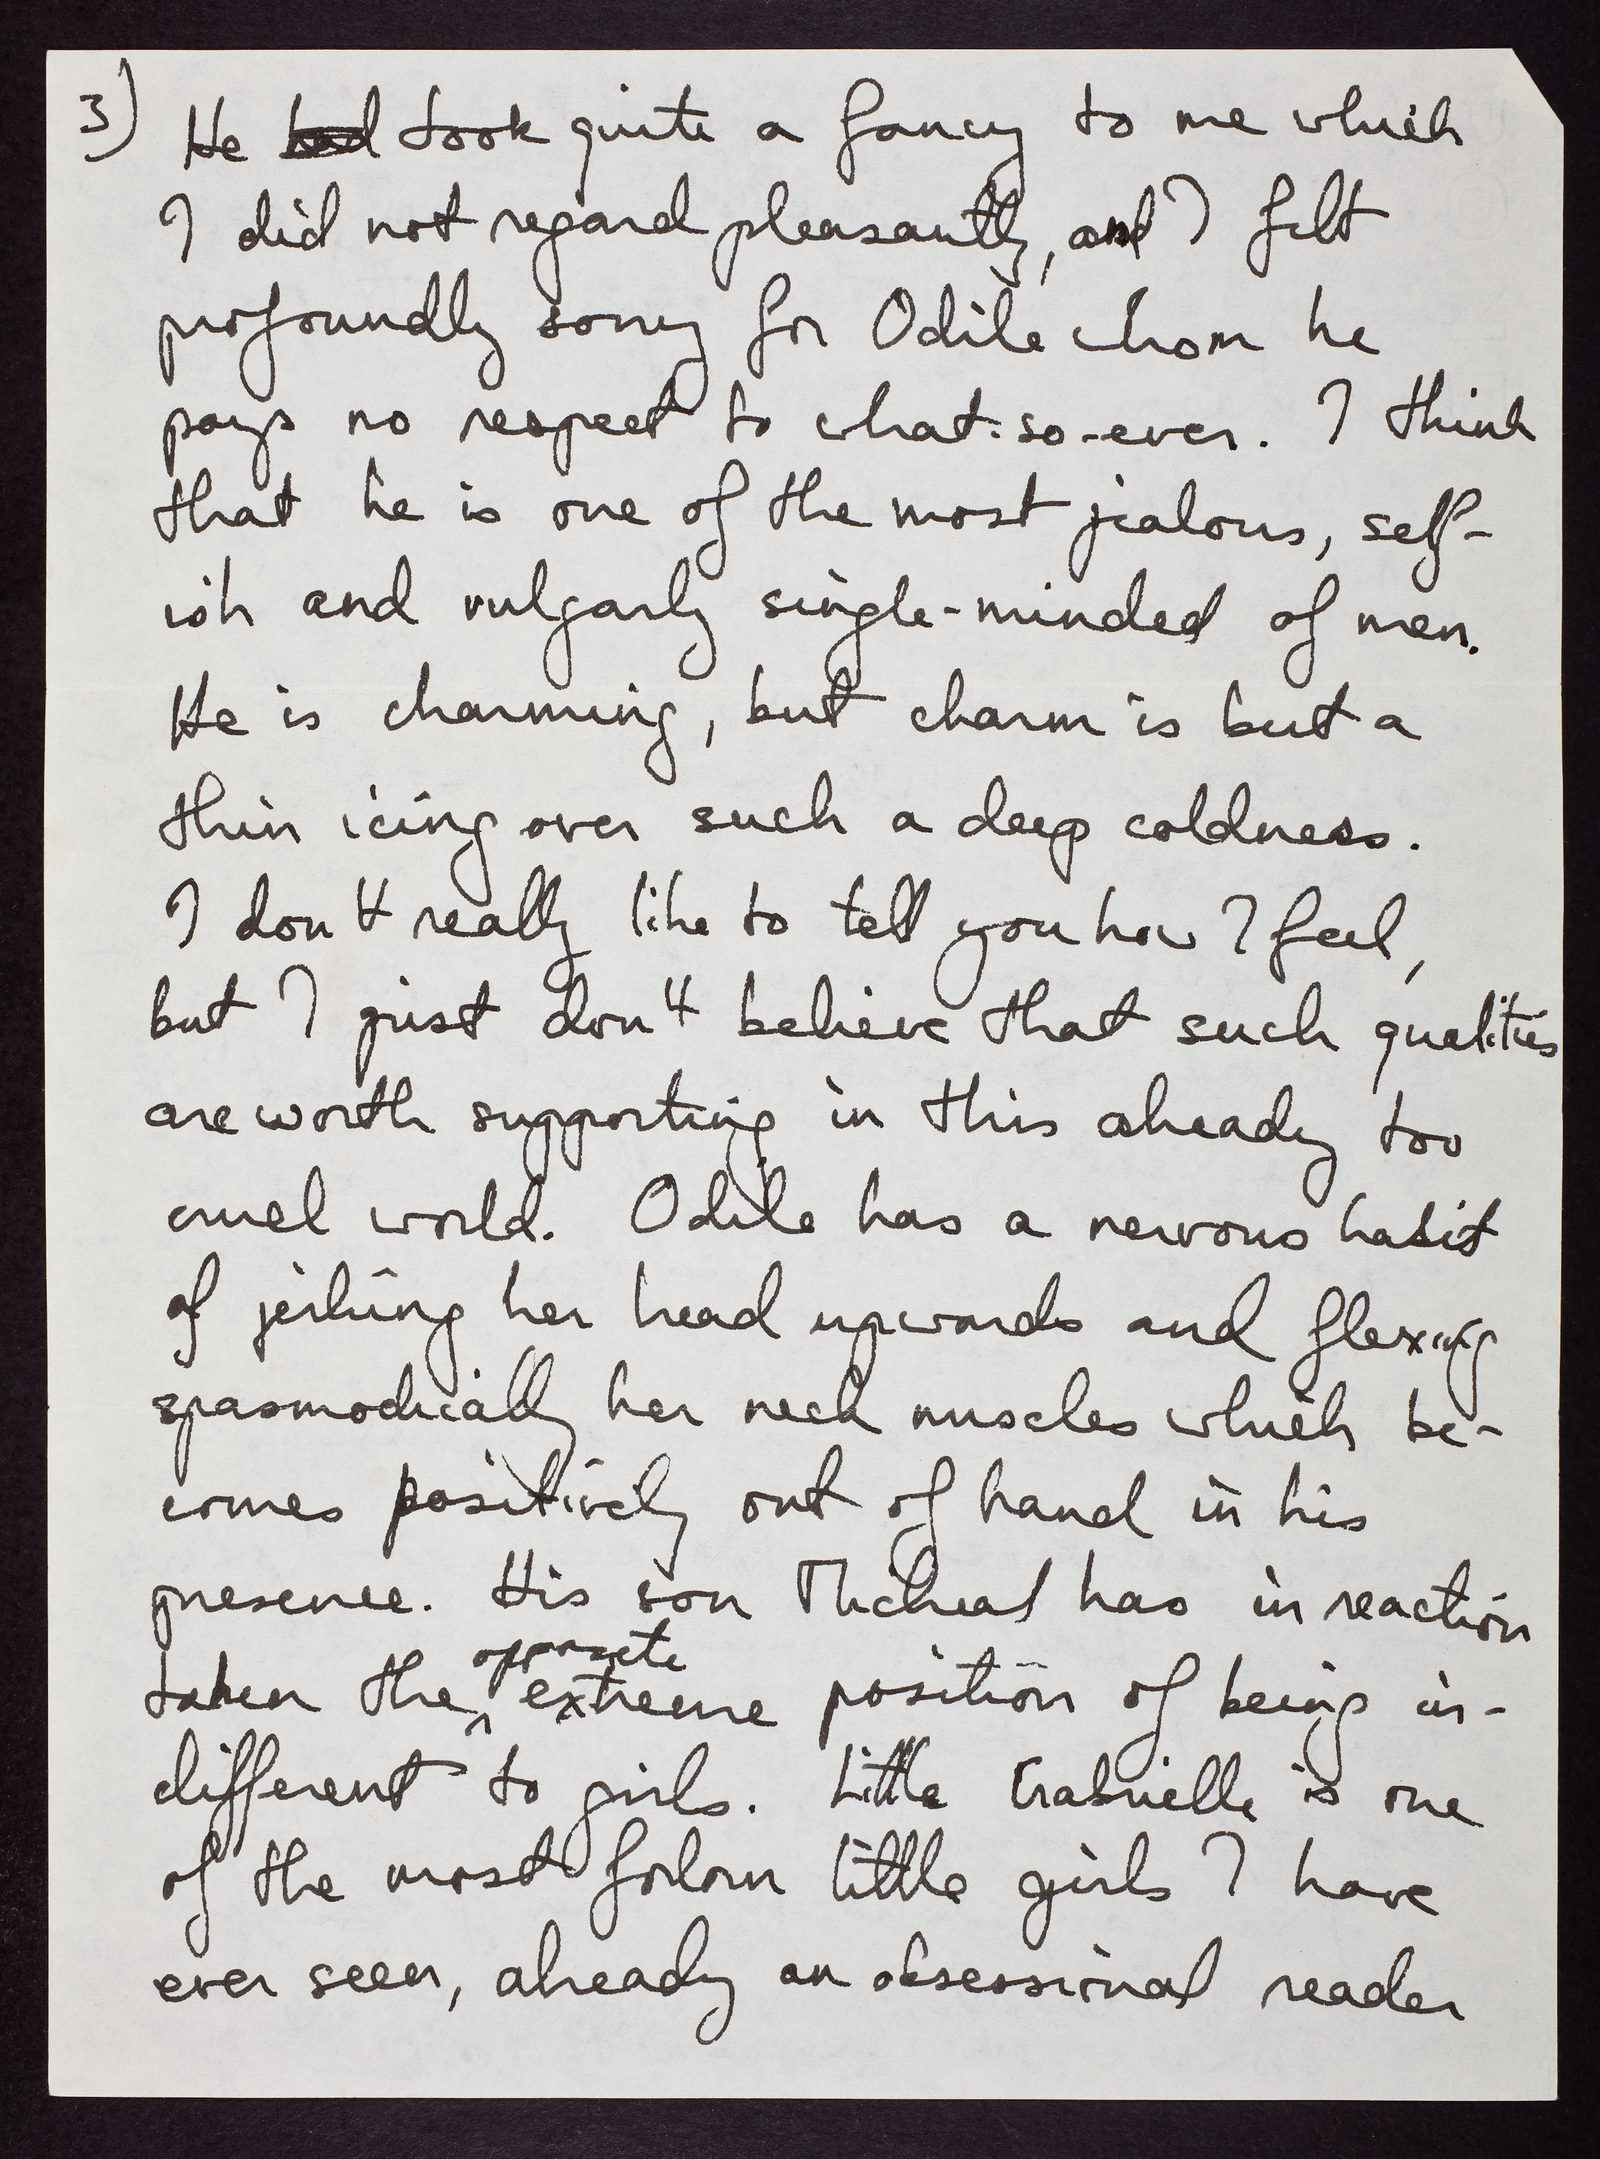 3) He had took quite a fancy to me which
I did not regard pleasantly, and I felt
profoundly sorry for Odile whom he
pays no respect to what-so-ever. I think
that he is one of the most jealous, self-
ish and vulgarly single-minded of men.
He is charming, but charm is but a
thin icing over such a deep coldness.
I don't really like to tell you how I feel,
but I just don't believe that such qualities
are worth supporting in this already too
cruel world. Odile has a nervous habit
of jerking her head upwards and flexing
spasmodically her neck muscles which be-
comes positively out of hand in his
presence. His son Micheal has in reaction
opposite
taken the extreme position of being in-
different to girls. Little Gabrielle is one
of the most forlorn little girls I have
ever seen, already an obsessional reader